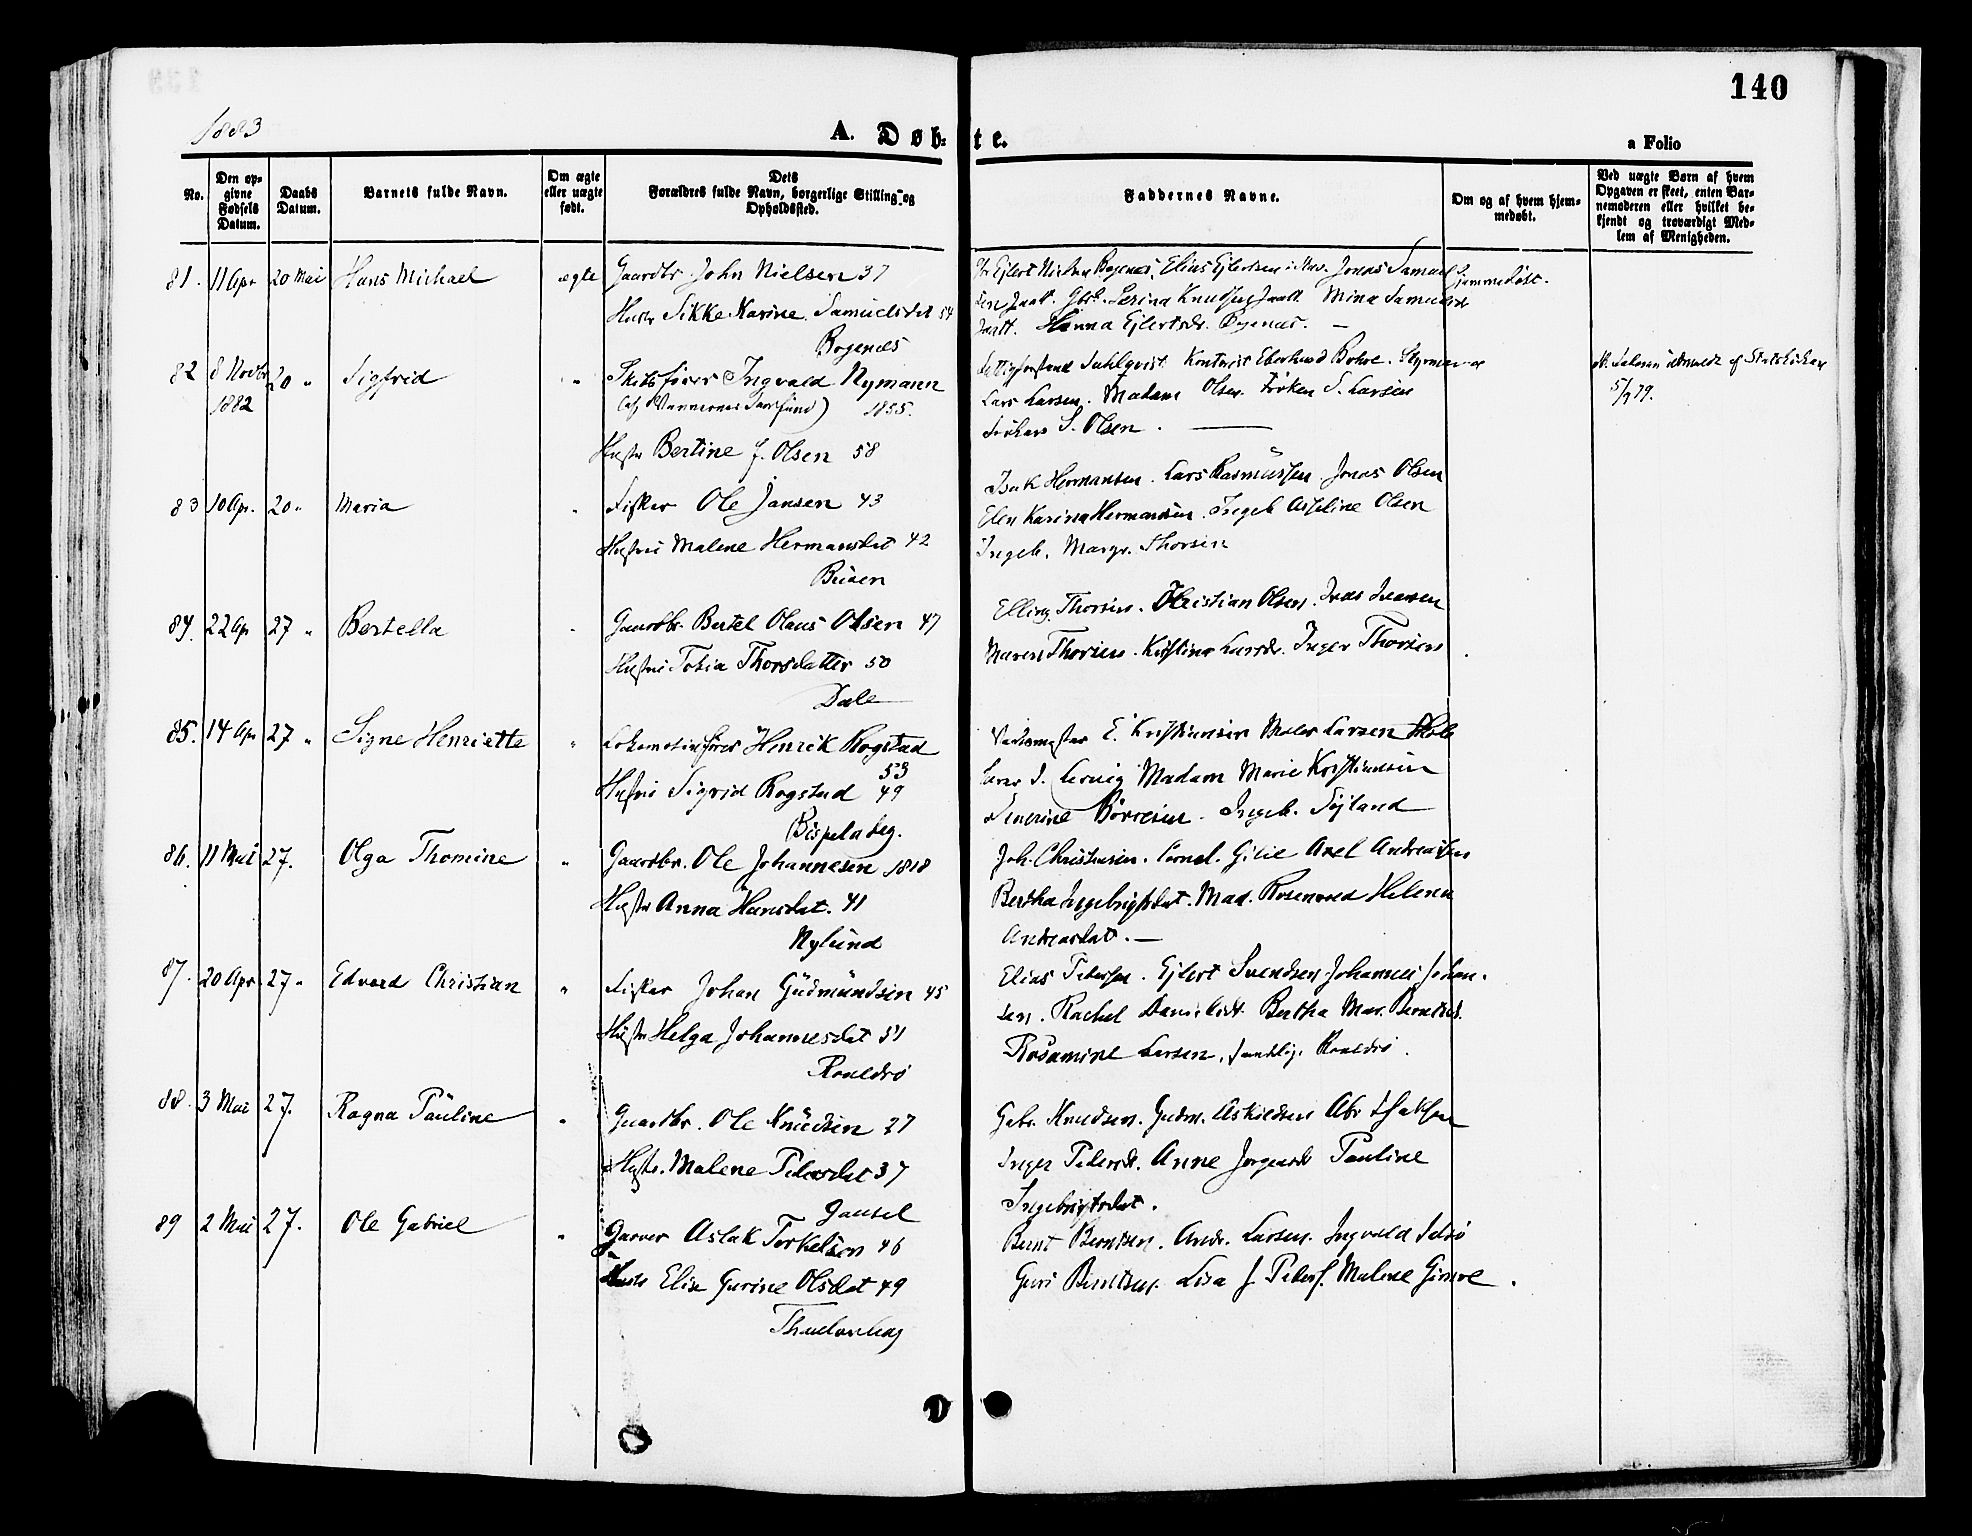 140
1883
A. Døb-
te.
a Folio
No.
Den op-
givne
Fødsels
Datum.
Daabs
Datum.
Barnets fulde Navn.
Om ægte
eller uægte
født.
Dets
Forældres fulde Navn, borgerlige Stilling og
Opholdssted.
Faddernes Navne.
Om og af hvem hjem-
medøbt.
Ved uægte Børn af hvem
Opgaven er skeet, enten Bar-
nemoderen eller hvilket be-
kjendt og troværdigt Med-
lem af Menigheden.
81. 11 Apr 20 Mai Hans Michael ægte Gaardbr. John Nielsen 37
Hustr Sikke Karine Samuelsdat 54
Bogenæs
Ejlert Nielsen Bogenæs, Elias Ejlertsen Jonas Samuel
sen Serina Knudsen Mina Samuelsdr
Hanna Ejlertsdr. Bogenæs. —
Hjemmedøbt.
82 8 Novbr 20 " Sigfrid " Skibsfører Ingvald Nymann
1882
1855.
Hustr Bertine f. Olsen 58
Dahlqvist. Kontorist Eberhard Bohre. Styrmand
Lars Larsen. Madam Olsen. Frøken S. Larsen
Frøken S. Olsen. —
af Statskirken
5/9 79.
83 10 Apr. 20 " Maria " Fisker Ole Jansen 43
Hustru Malene Hermansdat 42
Buøen
Isak Hermansen. Lars Rasmussen. Jonas Olsen
Elen Karina Hermansen. Ingeb. Olsen
Ingeb. Margr. Thorsen
84. 22 Ap 27 " Bertella " Gaardbr. Bertel Olaus Olsen 47
Hustru Tobia Thorsdatter 50
Dale
Elling Thorsen. Christian Olsen. Ivar Ivarsen
Maren Thorsen. Kristine Larsdr. Inger Thorsen.
85. 14 Ap 27 " Signe Henriette " Lokomotivfører Henrik Rogstad
53
Hustru Sigrid Rogstad 49
Bispeladeg.
E. Kristiansen Maler Larsen
Madam Marie Kristiansen
Severine Børresen. Ingeb. Føjland
86. 11 Mai 27. Olga Thomine " Gaardbr. Ole Johannesen 1818
Hustr Anna Hansdat. 41
Nylund
Joh. Christensen. Cornel. Gilje Axel Andreassen
Bertha Ingebrigtsdat. Mad. Rosenvold Helena
Andreasdat. —
87. 20 Apr. 27 " Edvard Christian " Fisker Johan Gudmundsen 45
Hustr Helga Johannesdat 51
Rouldrø
Elias Petersen. Ejlert Svendsen Johannes Johan-
sen. Rachel Danielsdt. Bertha Mar. Berntsd.
Rosamine Larsen, samtlige Rouldrø.
88. 3 Mai 27. Ragna Pauline " Gaardbr. Ole Knudsen 27
Hustr. Malene Petersdat 37
Gausel
Gabr. Knudsen. Gudm. Askildsen Abr Isaksen
Inger Petersdt. Anne Jørgensdt Pauline
Ingebrigtsdat.
89 2 Mai 27. Ole Gabriel " Garver Aslak Torkelsen 46
Hustr Elise Gurine Olsdat 49
Bernt Berntsen. Andr. Larsen. Ingvald
Guri Berntsen. Lisa J. Peders. Malene Gimre.
D